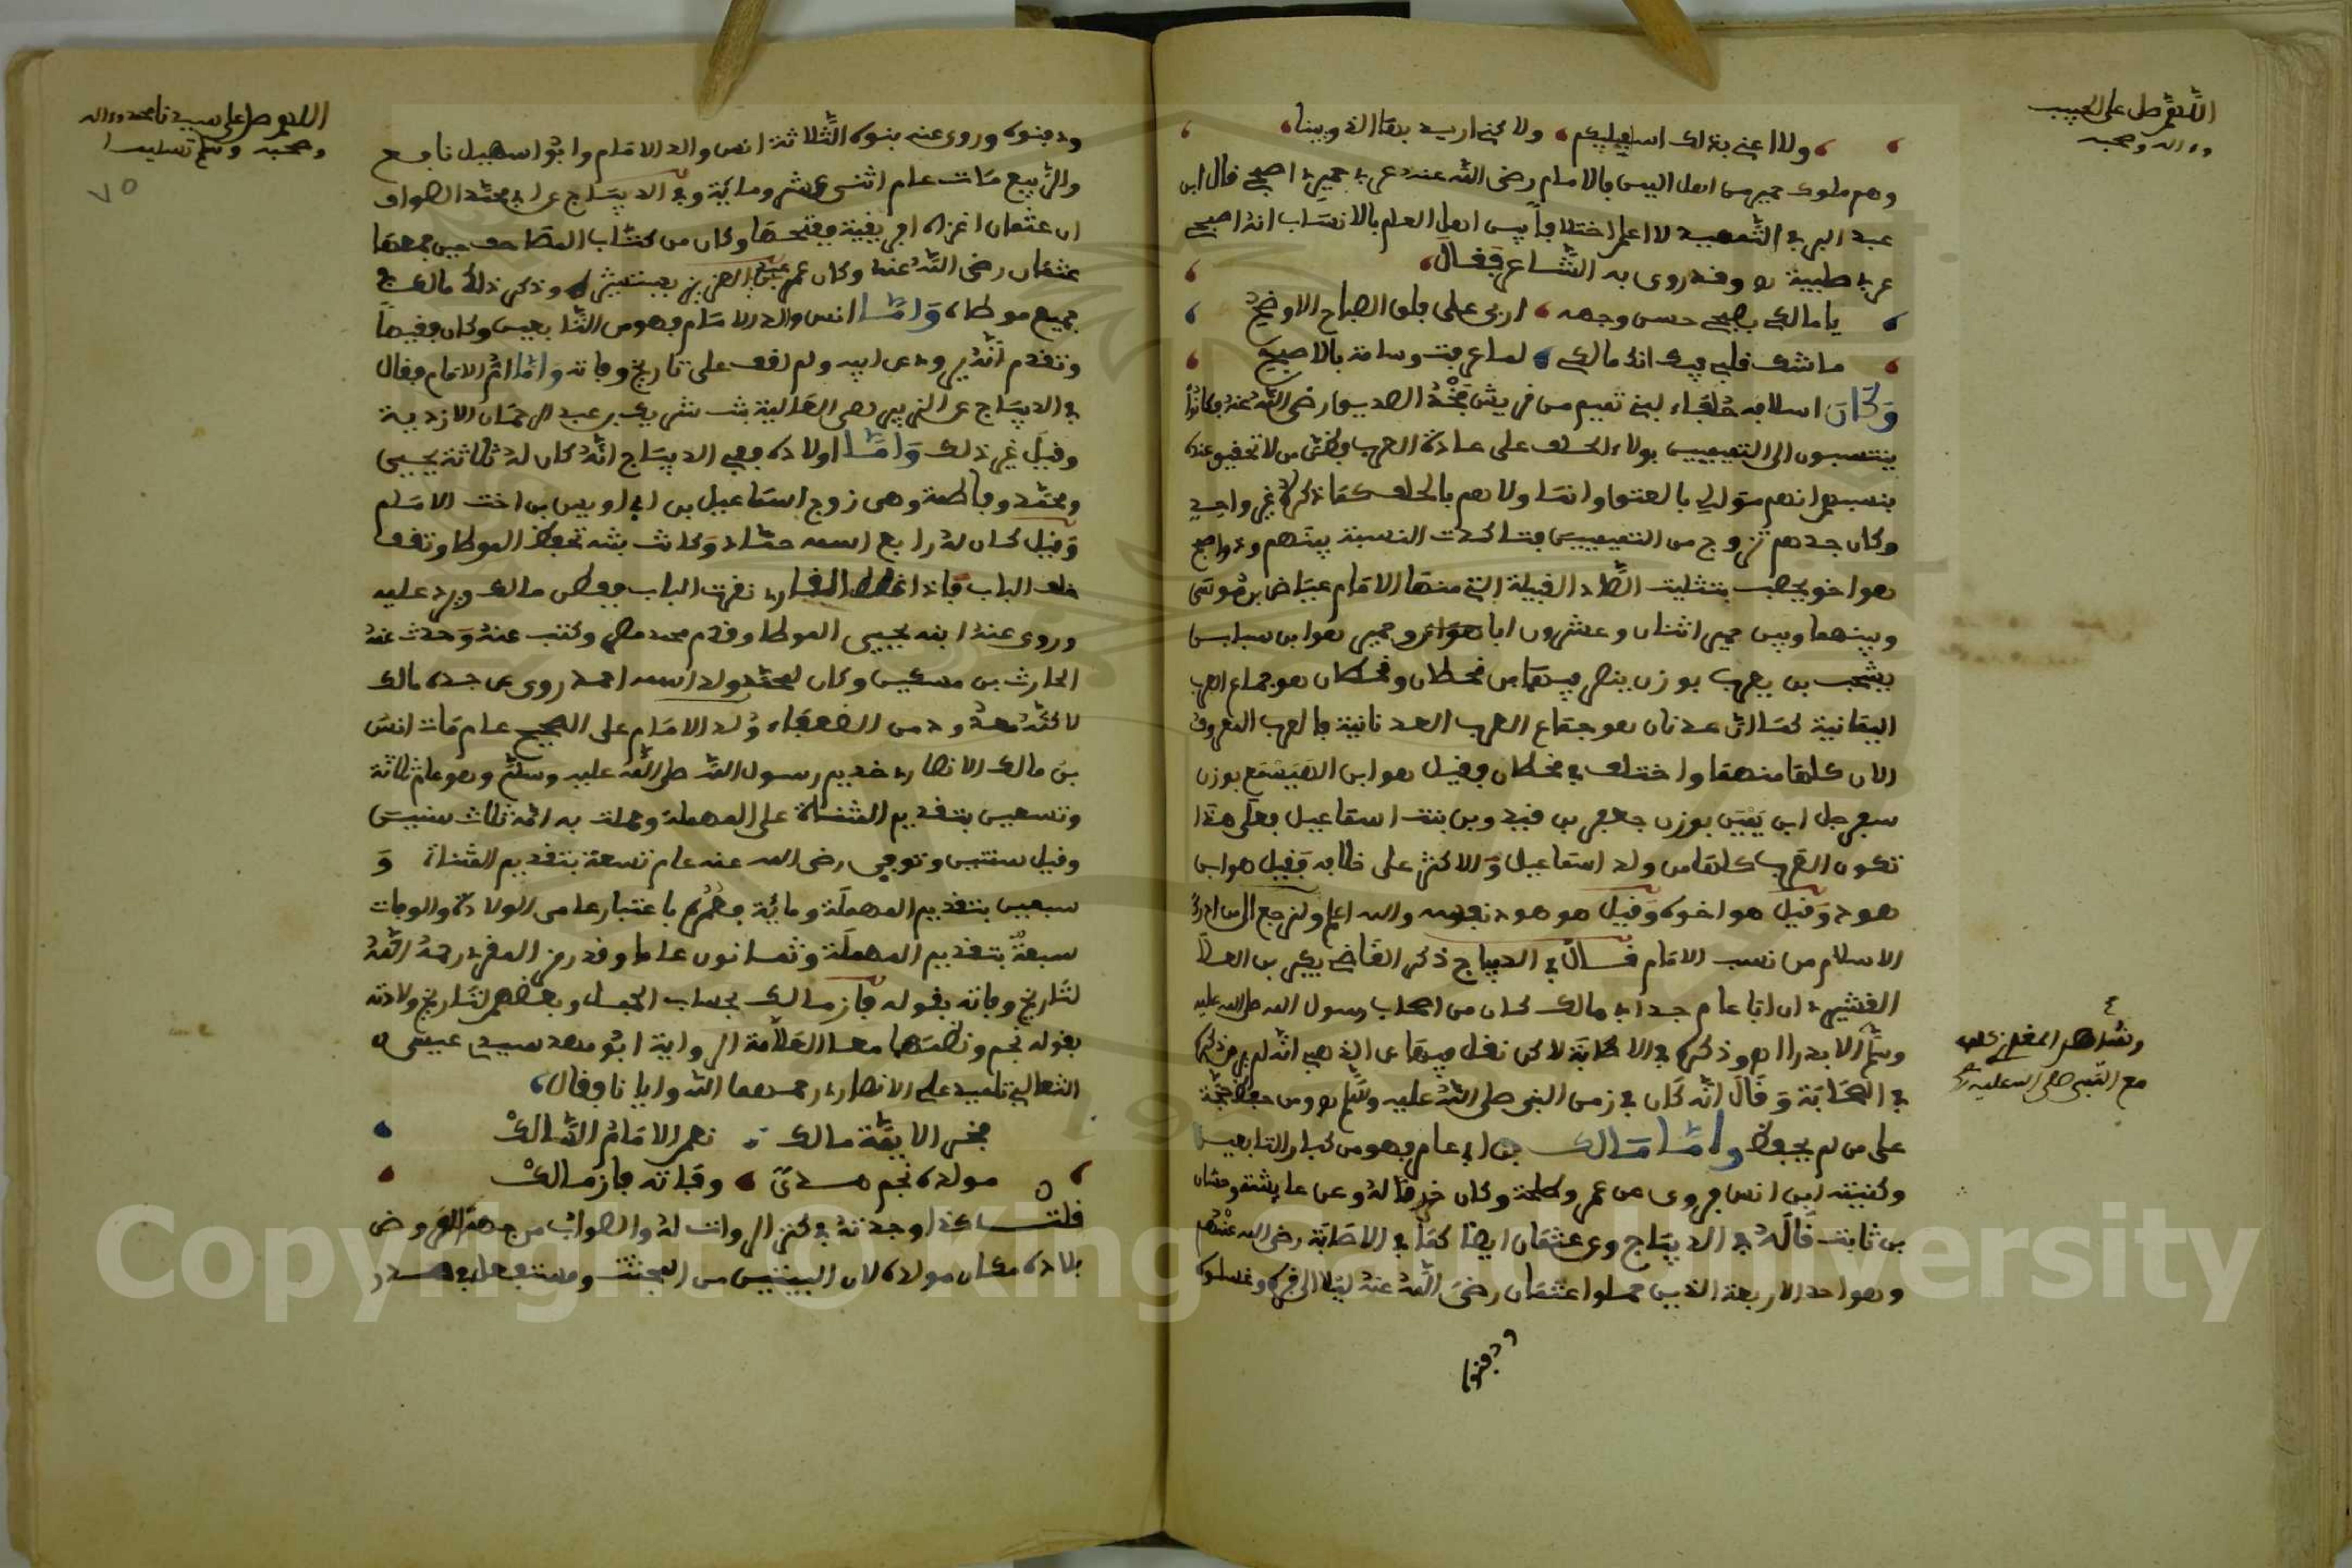 اللهم صل على الحبيب
وءاله وصحبه
ولا اعني بذلك اسفليكم ولاكني اريد بها الذوينا
وهم ملوك حمير من اهل اليمن فالامام رضي الله عنه عربي حميري اصبحي قال ابن
عبد البر في التمهيد لا اعلم اختلافا بين اهل العلم بالانساب انه اصبحي
عربي صليبة وقد روى به الشاعر فقال
يا مالكي بصبحي حسن وجهه اربى على فلق الصباح الاوضح
ما شك قلبي فيك انك مالكي لما عرفت وسامة بالاصبح
وكان اسلافه حلفاء لبني تميم من قريش فخذ الصديق رضي الله عنه فكانوا
ينتسبون الى التيميين بولاء الحلف على عادة العرب وظن من لا تحقيق عنده
بنسبهم انهم موالي بالعتق وانما ولاهم بالحلف كما ذكره غير واحد
وكان جدهم تزوج من التيميين فتاكدت النسبة بينهم وذو اصبح
هو اخو يحصب بتثليث الصاد القبيلة التي منها الامام عياض بن موسى
وبينهما وبين حمير اثنان وعشرون ابا وحمير هو ابن سبا بن
يشجب بن يعرب بوزن ينصر فيهما بن قحطان وقحطان هو جماع العرب
اليمانية كما ان عدنان هو جماع العرب العدنانية فالعرب المعروف
الان كلها منهما واختلف في قحطان فقيل هو ابن الهميسع بوزن
سفرجل ابن يمن بوزن جعفر بن قيدر وبن بنت اسماعيل فعلى هذا
تكون العرب كلها من ولد اسماعيل والاكثر على خلافه فقيل هو ابن
هود وقيل هو اخوه وقيل هو هود نفسه والله اعلم ولنرجع الى ما ذكره
الاسلام من نسب الامام قال في الديباج ذكر القاضي بكر بن العلا
القشيري ان ابا عامر جد ابي مالك كان من اصحاب رسول الله صلى الله عليه
وسلم الا بدرا اهـ وذكره في الاصابة لاكن نقل فيها عن الذهبي انه لم ير من ذكره
في الصحابة وقال انه كان في زمن النبي صلى الله عليه وسلم اهـ ومن حفظ حجة
على من لم يحفظ واما مالك بن ابي عامر فهو من كبار التابعين
وكنيته ابو انس فروى عن عمر وطلحة وكان خرقا له وعن عايشة وحسان
بن ثابت قاله في الديباج وعن عثمان ايضا كما في الاصابة رضي الله عنهم
وهو احد الاربعة الذين حملوا عثمان رضي الله عنه ليلا الى قبره وغسلوه
ودفنوه
وشاهد المغازي كلها
مع النبي صلى الله عليه وسلم
اللهم صل على سيدنا محمد وءاله
وصحبه وسلم تسليما
٧٥
ودفنوه وروى عنه بنوه الثلاثة انس والد الامام وابو سهيل نافع
والربيع مات عام اثنى عشر ومائة وفي الديباج عن ابي محمد الصواف
ان عثمان اغزاه افريقية ففتحها وكان من كتاب المصاحف حين جمعها
عثمان رضي الله عنه وكان عمر بن عبد العزيز يستشيره وذكر ذلك مالك في
جميع موطاه واما انس والد الامام فهو من التابعين وكان فقيها
وتقدم انه يروي عن ابيه ولم اقف على تاريخ وفاته واما ام الامام فقال
في الديباج عن الزبير هي العالية بنت شريك بن عبد الرحمان الازدية
وقيل غير ذلك واما اولاده ففي الديباج انه كان له ثلاثة يحيى
ومحمد وفاطمة وهي زوج اسماعيل بن ابي اويس بن اخت الامام
وقيل كان له رابع اسمه حماد وكانت بنته تحفظ الموطا وتقف
خلف الباب فاذا غلط القارئ نقرت الباب ففطن مالك ويرد عليه
وروى عنه ابنه يحيى الموطا وقدم محمد مصر وكتب عنه وحدث عنه
الحارث بن مسكين وكان لمحمد ولد اسمه احمد روى عن جده مالك
لاكنه معدود من الضعفاء ولد الامام على الصحيح عام مات انس
بن مالك الانصاري خديم رسول الله صلى الله عليه وسلم وهو عام ثلاثة
وتسعين بتقديم المثناة على المهملة وحملت به امه ثلاث سنين
وقيل سنتين وتوفي رضي الله عنه عام تسعة بتقديم المثناة و
سبعين بتقديم المهملة ومائة فعمره باعتبار عامي الولادة والوفات
سبعة بتقديم المهملة وثمانون عاما وقد رمز المقري رحمه الله
لتاريخ وفاته بقوله فاز مالك بحساب الجمل وبعضهم لتاريخ ولادته
بقوله نجم ونظمهما معا العلامة الرواية ابو مهدي سيدي عيسى
الثعالبي تلميذ علي الانصاري رحمهما الله وايانا وقال
فخر الايمة مالك نعم الامام السالك
مولده نجم هدى وفاته فاز مالك
قلت كذا وجدته في كنز الروات له والصواب من جهة العروض
ميلاده مكان مولده لان البيتين من المجتث ومستفعلن في صدر